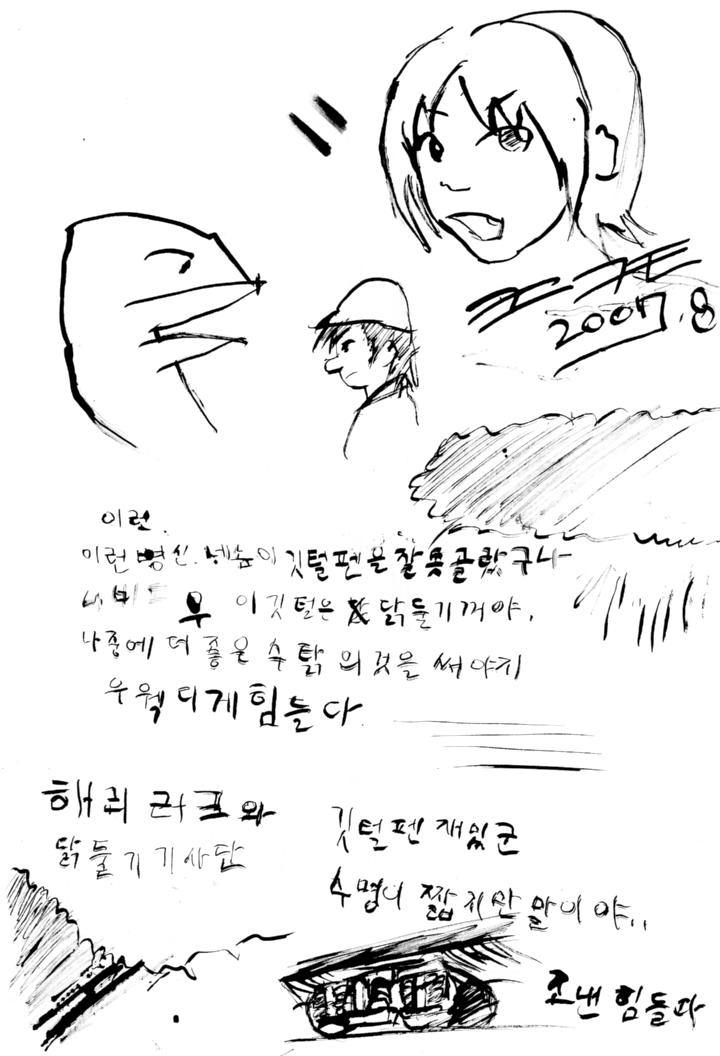 2007.8
이런.
이런 병신. 이 깃털펜은 잘못골랐구나
우 이 깃털은 닭둘기꺼야.
나중에 더 좋은 수탉 의것을 써야지
우웩 디게 힘들다
해리 러크와
닭둘기기사단
깃털펜 재밌군
수명이 짧지만 말이야..
조낸 힘들다